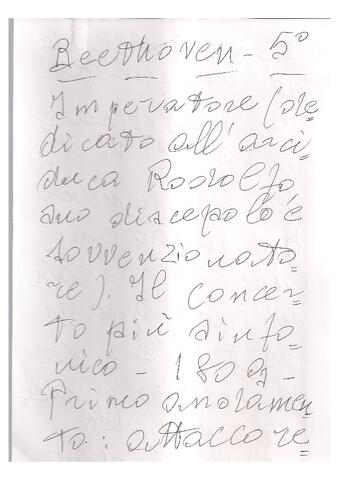 Beethoven - 5°
Imperatore (de=
dicato all'arci=
duca Rodolfo,
suo discepolo e
sovvenzionato=
re). Il concer=
to più sinfo=
nico - 1809 -
Primo andamen=
to: attaccore=